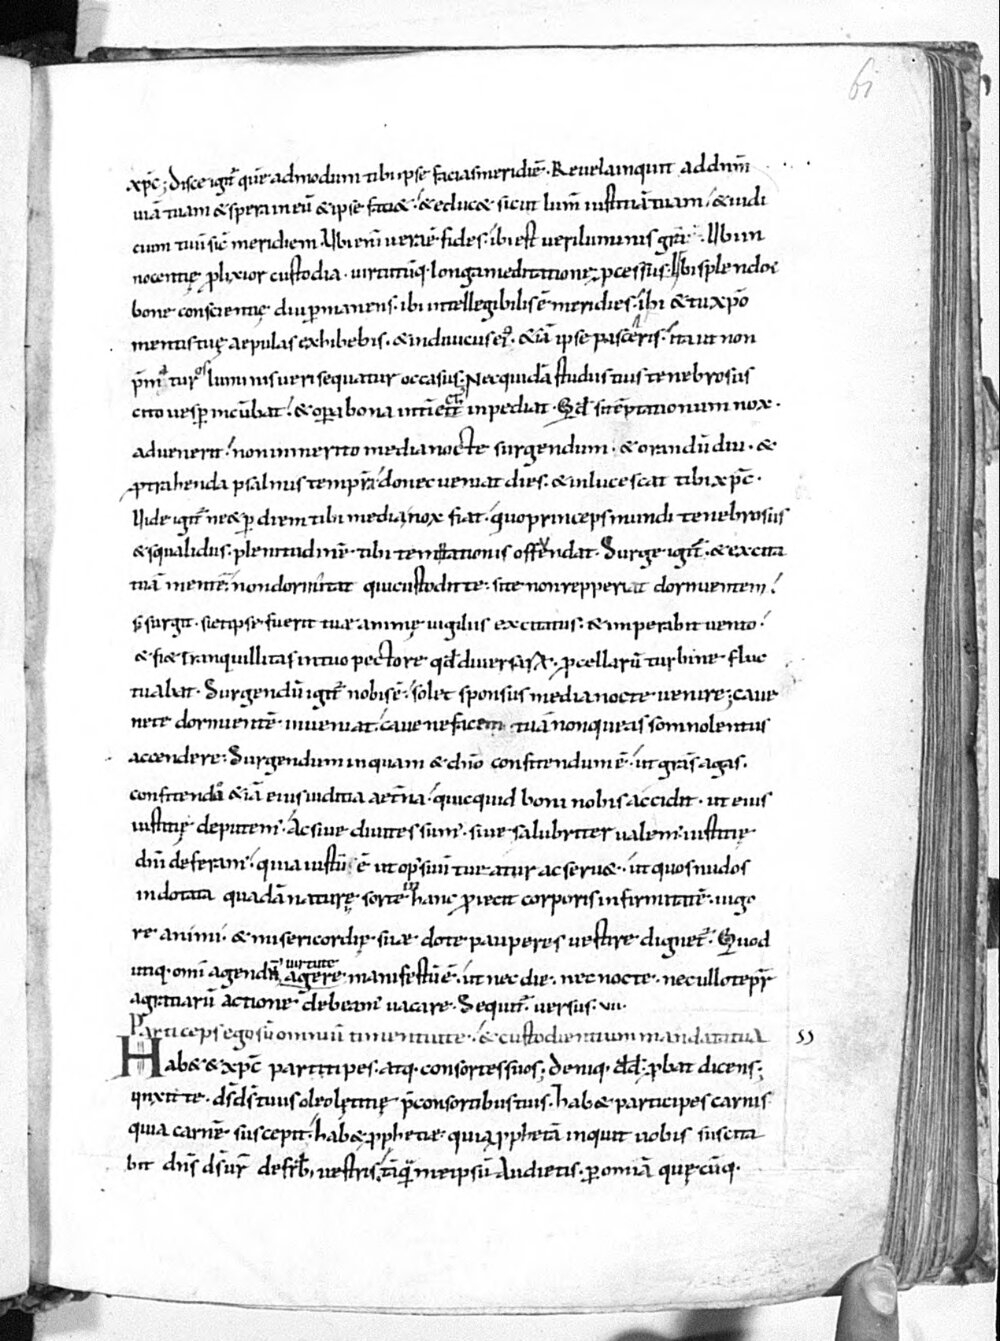 61
xp̄c; disce igit̄ quē admodum tibi ipse facias meridiē. Revela inquit ad dn̄m
viā tuam & spera in eū & ipse faci&. & educ& sicut lum̄ iustitiā tuam. & iudi
cium tuū sic̄ meridiem. Ubi enī vera ē fides. ibi est veri luminis gr̄a. Ubi in
nocentię ꝓlixior custodia. virtutūq. longa meditatione ꝓcessus. Ubi splendor
bonę conscientię diu ꝑmanens. ibi intellegibilis ē meridies. ibi & tu xp̄o
mentis tuę aepulas exhibebis. & indivicus ei. & iā ipse pasceris. ita ut non
luminis veri sequatur occasus. Nec quidā studus tuis tenebrosus
cito vesꝑ incūbat. & oꝑa bona inpediat. Qd̄ si tēptationum nox.
advenerit. non inmerito media nocte surgendum. & orandū diu. &
ꝓtrahenda psalmis tempr̄a. donec veniat dies. & inlucescat tibi xp̄c.
Vide igit̄ ne & ꝑ diem tibi media nox fiat. quo princeps mundi tenebrosus
& squalidus. plenitudinē tibi temptationis offendat. Surge igit̄. & excita
tuā mentē. non dormitat qui custodit te. si te non repperiat dormientem.
s; surgit. si et ipse fuerit tuae animę vigiliis excitatus. & imperabit vento.
& fi& tranquillitas in tuo pectore qd̄ diversar. ꝓcellarū turbine fluc
tuabat. Surgendū igit̄ nobis ē. solet sponsus media nocte venire; cave
ne te dormientē inveniat. cave ne facem tuā non queas somnolentus
accendere. Surgendum inquam & dn̄o confitendum ē. ut gr̄as agas.
confitendo & iā eius iuditia aet̄na. quicquid boni nobis accidit. ut eius
iustitię deputem̄. Ac sive divites sum̄. sive salubriter valem̄. iustitię
dn̄i deferam̄. quia iustū ē ut op̄s suū tueatur ac serv&. ut quos nudos
indotata quadā naturę sorte in hanc ꝓiecit corporis infirmitatē. vigo
re animi. & misericordię suae dote pauperes vestire dignet̄. Quod
utiq. om̄i agendū virtute agere manifestū ē. ut nec die. nec nocte. nec ullo tepr̄
a gratiarū actione debeam̄ vacare. Sequit̄ versus. vii.
Particeps ego sū omniū timentiū te. & custodientium mandata tua
Hab& & xp̄c participes. atq. consortes suos; deniq. dd̄. ꝓbat dicens;
unxit te. ds̄ ds̄ tuus oleo lętitię p̄ consortibus tuis. Hab& participes carnis
quia carnē suscepit. hab& ꝓphetiae. quia ꝓphetā inquit vobis suscita
bit dn̄s ds̄ ur̄ de frīb; vestris. tāquā me ipsū audietis. ꝑ omīa quęcūq.